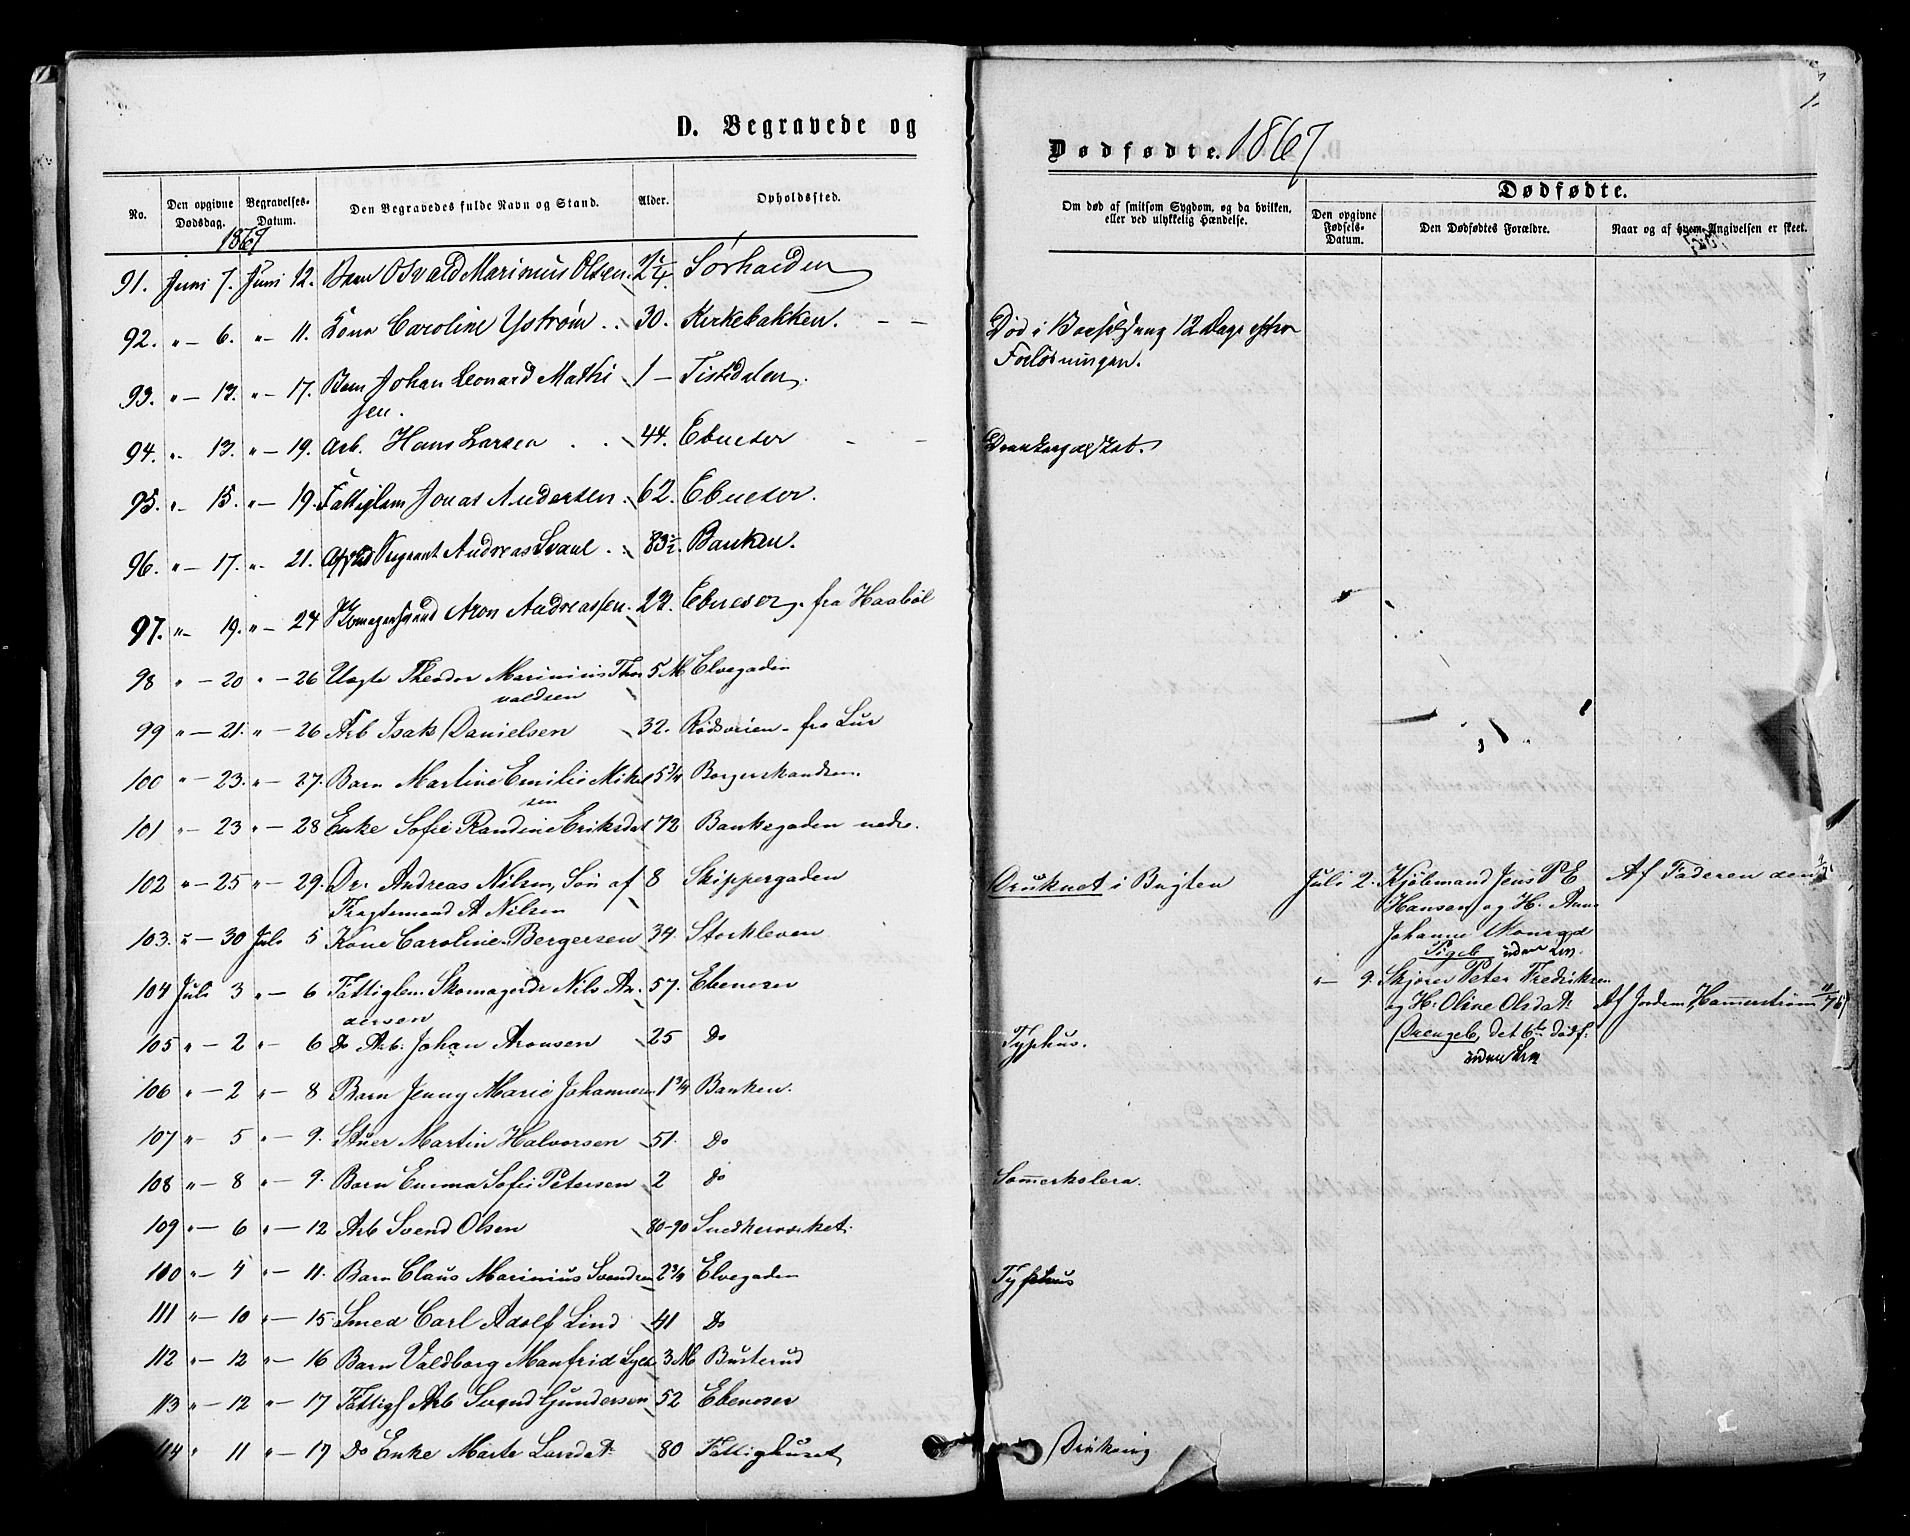 D. Begravede og
Dødfødte. 1867
No. Den opgivne Dødsdag. Begravelses-Datum. Den Begravedes fulde Navn og Stand. Alder. Opholdssted.
Om død af smitsom Sygdom, og da hvilken, eller ved ulykkelig Hændelse.
Dødfødte.
Den opgivne Fødsels-Datum. Den Dødfødtes Forældre. Naar og af hvem Angivelsen er skeet.
1867
91. Juni 7. Juni 12. Barn Osvald Marinius Olsen 2 1/4 Sørhalden
92. " - 6. " - 11. Kone Caroline Ystrøm 30. Kirkebakken. - - Død i Barselseng 12 Dage efter
Forløsningen.
93. " - 12. " - 17. Barn Johan Leonard Mathi 1 - Tistedalen.
sen.
94. " - 13. " - 19. Arb. Hans Larsen 44. Ebneser - - Drankergalskab.
95. " - 15. " - 19. Fattiglem Jonas Andersen. 62. Ebneser.
96. " - 17. " - 21. Afsked Sergeant Andreas Svane 83 1/2. Banken.
97. " - 19. " - 24 Andreassen. 22. Ebneser, fra Haabøl
98 " - 20 " - 26 Uægte Theodor Marinius Thor 5 M Elvegaden
valdsen
99 " - 21. " - 26 Arb Isak Danielsen 32. Rødsveien - fra Lur
100 " - 23. " - 27. Barn Martine Emilie Mikel 5 3/4 Borgerskandsen.
sen
101 " - 23 " - 28 Enke Sofie Randine Eriksdat 72 Bankegaden nedre.
102 " - 25 " - 29. Dr. Andreas Nilsen, Søn af 8 Skippergaden Druknet i Bugten Juli 2. Kjøbmand Jens P E Af Faderen den
Fragtemand A Nilsen Hansen og H. Anne
103. " - 30 Juli 5 Kone Caroline Bergersen 34. Storkleven Johanne
Pigeb uden Liv.
104 Juli 3 " - 6 Fattiglem Skomagerdr Nils An- 57. Ebeneser " - 9. Skjører Peter Fredriksen
dersen og H. Oline Olsdatr Af Jordem. Hammerstrøm 11/7 67
105 " - 2 " - 6 Do Arb. Johan Aronsen 25 Do Typhus. Drengeb, det 6te dødf.
uden Liv
106 " - 2 " - 8 Barn Jenny Marie Johannesen 1 3/4 Banken.
107 " - 5 " - 9. Stuer Martin Halvorsen 51. Do
108 " - 8 " - 9. Barn Emma Sofie Petersen 2 Do Sommerkolera.
109 " - 6 " - 12 Arb Svend Olsen 80-90 Snedkerværket.
110 " - 4 " - 11. Barn Claus Marinius Svendsen 2 3/4 Elvegaden Typhus
111 " - 10 " - 15 Smed Carl Adolf Lind 41 Do
112 " - 12 " - 16 Barn Valdborg Manfrid 3 M Busterud
113 " - 12 " - 17 Fattigl Arb Svend Gundersen 52 Ebeneser
114 " 11 " - 17 Do Enke Marte Larsdatr 80 Fattighuset